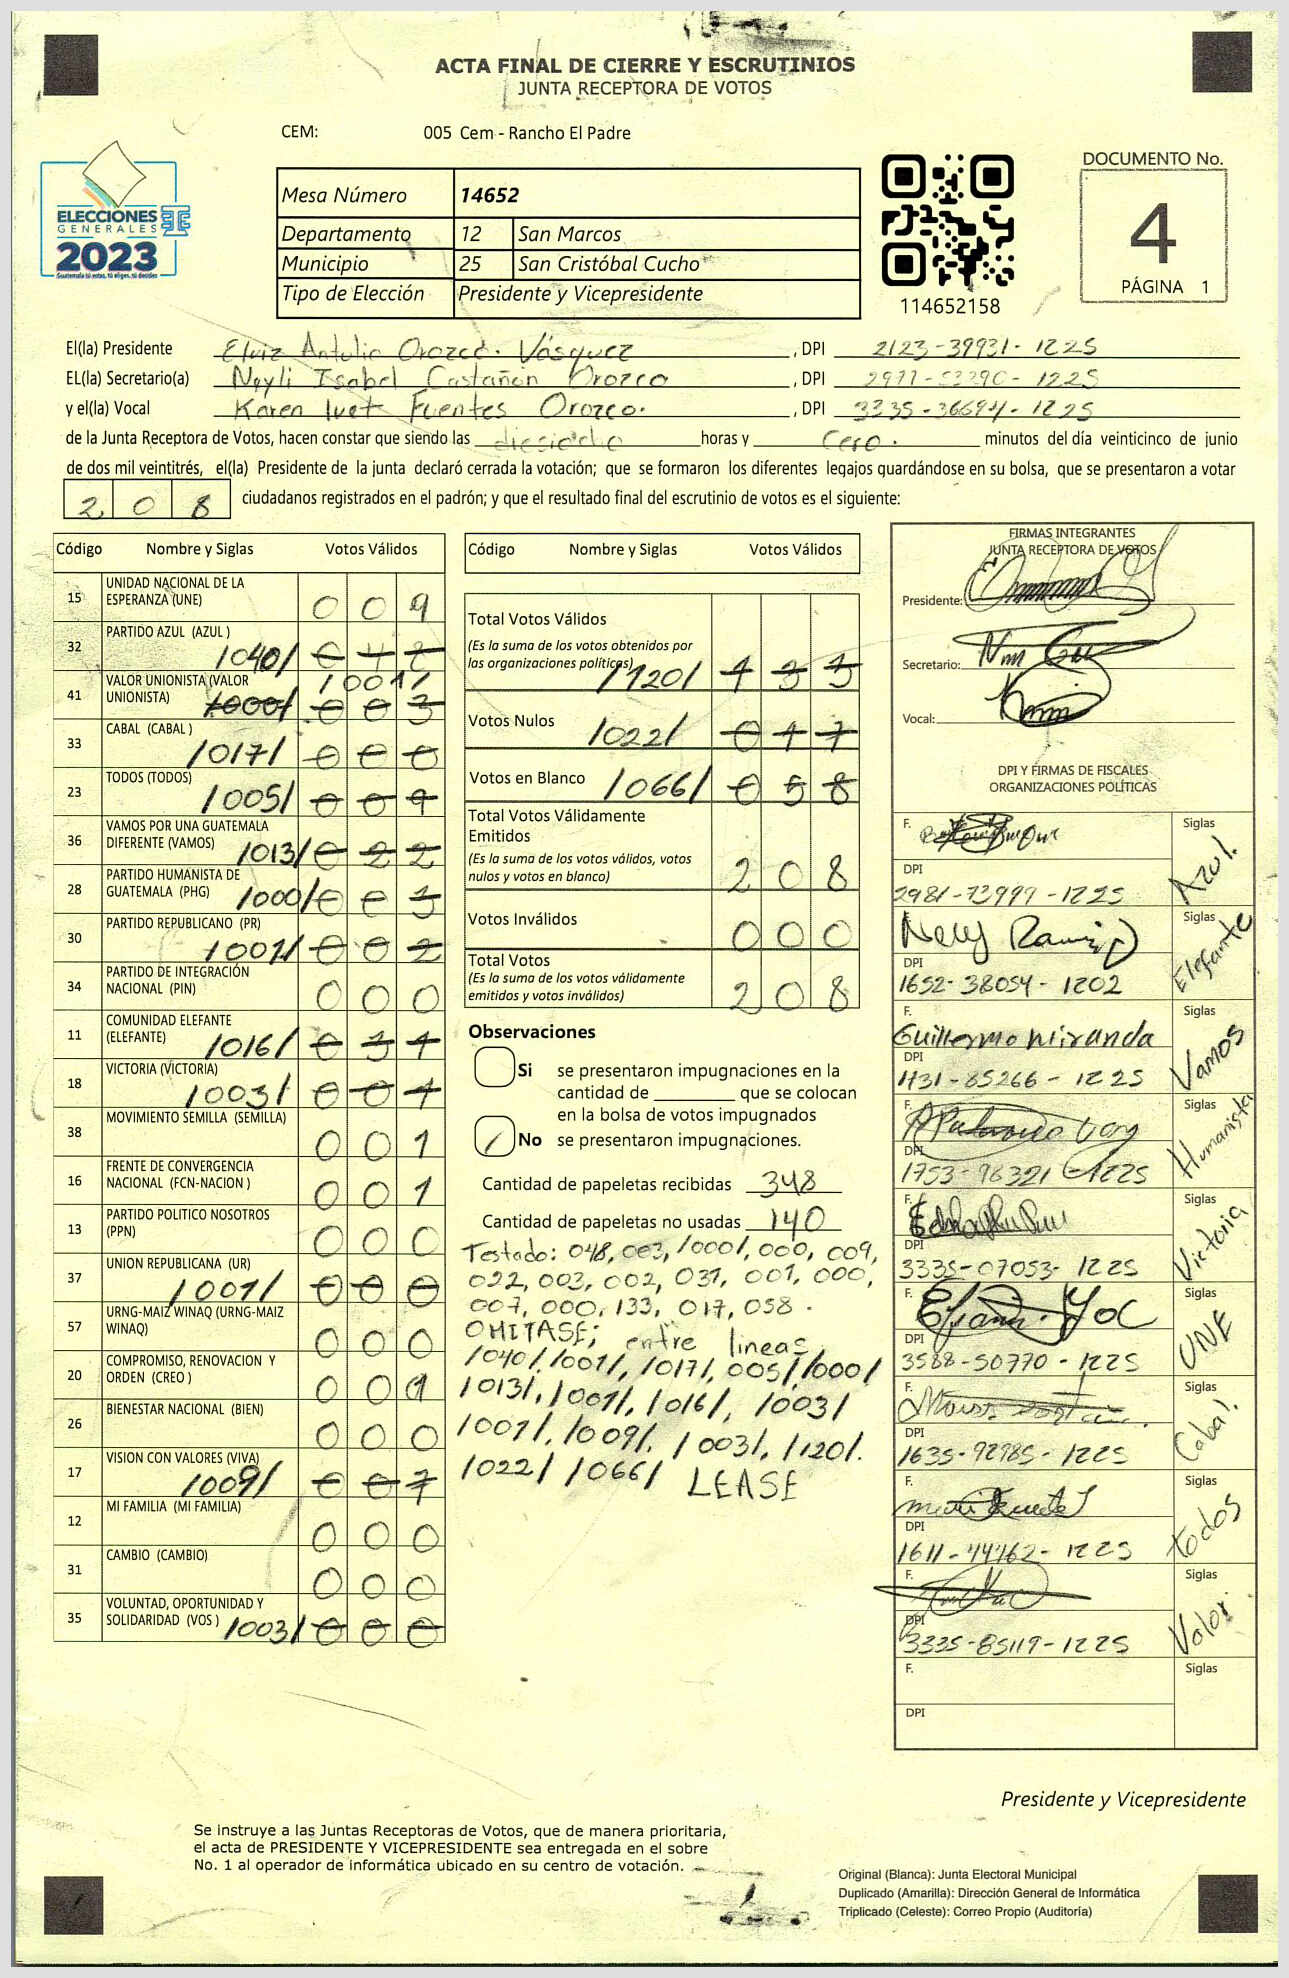 ACTA FINAL DE CIERRE Y ESCRUTINIOS
JUNTA RECEPTORA DE VOTOS
CEM: 005 Cem - Rancho El Padre
ELECCIONES
GENERALES
2023
Guatemala tú votas, tú eliges, tú decides
Mesa Número 14652
Departamento 12 San Marcos
Municipio 25 San Cristóbal Cucho
Tipo de Elección Presidente y Vicepresidente
114652158
DOCUMENTO No.
4
PÁGINA 1
El(la) Presidente Elviz Antulio Orozco. Vásquez, DPI 2123-39931-1225
EL(la) Secretario(a) Neyli Isabel Castañón Orozco, DPI 2977-53390-1225
y el(la) Vocal Karen Ivet Fuentes Orozco., DPI 3335-36694-1225
de la Junta Receptora de Votos, hacen constar que siendo las dieciocho horas y cero. minutos del día veinticinco de junio
de dos mil veintitrés, el(la) Presidente de la junta declaró cerrada la votación; que se formaron los diferentes legajos guardándose en su bolsa, que se presentaron a votar
208 ciudadanos registrados en el padrón; y que el resultado final del escrutinio de votos es el siguiente:
Código Nombre y Siglas Votos Válidos
15 UNIDAD NACIONAL DE LA ESPERANZA (UNE) 009
32 PARTIDO AZUL (AZUL ) /040/ 042
41 VALOR UNIONISTA (VALOR UNIONISTA) /001/ /000/ 003
33 CABAL (CABAL ) /017/ 000
23 TODOS (TODOS) /005/ 009
36 VAMOS POR UNA GUATEMALA DIFERENTE (VAMOS) /013/ 022
28 PARTIDO HUMANISTA DE GUATEMALA (PHG) /000/ 003
30 PARTIDO REPUBLICANO (PR) /001/ 002
34 PARTIDO DE INTEGRACIÓN NACIONAL (PIN) 000
11 COMUNIDAD ELEFANTE (ELEFANTE) /016/ 031
18 VICTORIA (VICTORIA) /003/ 001
38 MOVIMIENTO SEMILLA (SEMILLA) 001
16 FRENTE DE CONVERGENCIA NACIONAL (FCN-NACION ) 001
13 PARTIDO POLITICO NOSOTROS (PPN) 000
37 UNION REPUBLICANA (UR) /001/ 000
57 URNG-MAIZ WINAQ (URNG-MAIZ WINAQ) 000
20 COMPROMISO, RENOVACION Y ORDEN (CREO ) 001
26 BIENESTAR NACIONAL (BIEN) 000
17 VISION CON VALORES (VIVA) /009/ 007
12 MI FAMILIA (MI FAMILIA) 000
31 CAMBIO (CAMBIO) 000
35 VOLUNTAD, OPORTUNIDAD Y SOLIDARIDAD (VOS ) /003/ 000
Código Nombre y Siglas Votos Válidos
Total Votos Válidos
(Es la suma de los votos obtenidos por
las organizaciones políticas) /120/ 133
Votos Nulos /022/ 017
Votos en Blanco /066/ 058
Total Votos Válidamente
Emitidos
(Es la suma de los votos válidos, votos
nulos y votos en blanco) 208
Votos Inválidos 000
Total Votos
(Es la suma de los votos válidamente
emitidos y votos inválidos) 208
Observaciones
Si se presentaron impugnaciones en la
cantidad de ________ que se colocan
en la bolsa de votos impugnados
No se presentaron impugnaciones.
Cantidad de papeletas recibidas 348
Cantidad de papeletas no usadas 140
Testado: 048, 003, /000/, 000, 009,
022, 003, 002, 031, 001, 000,
007, 000, 133, 017, 058.
OMITASE; entre lineas
/040/, /001/, /017/, 005/, /000/
/013/, /001/, /016/, /003/
/001/, /009/, /003/, /120/.
/022/ /066/ LEASE
FIRMAS INTEGRANTES
JUNTA RECEPTORA DE VOTOS
Presidente:
Secretario:
Vocal:
DPI Y FIRMAS DE FISCALES
ORGANIZACIONES POLÍTICAS
F. Siglas Azul.
DPI 2981-73999-1225
Nely Ramirez Siglas Elefante
DPI 1652-38054-1202
F. Guillermo Miranda Siglas Vamos
DPI 1731-85266-1225
F. Siglas Humanista
DPI 1753-96321-1225
F. Siglas Victoria
DPI 3335-07053-1225
F. Siglas UNE
DPI 3588-50770-1225
F. Siglas Cabal.
DPI 1635-92985-1225
F. Siglas todos
DPI 1611-44462-1225
F. Siglas Valor
DPI 3335-85119-1225
F. Siglas
DPI
Presidente y Vicepresidente
Se instruye a las Juntas Receptoras de Votos, que de manera prioritaria,
el acta de PRESIDENTE Y VICEPRESIDENTE sea entregada en el sobre
No. 1 al operador de informática ubicado en su centro de votación.
Original (Blanca): Junta Electoral Municipal
Duplicado (Amarilla): Dirección General de Informática
Triplicado (Celeste): Correo Propio (Auditoría)